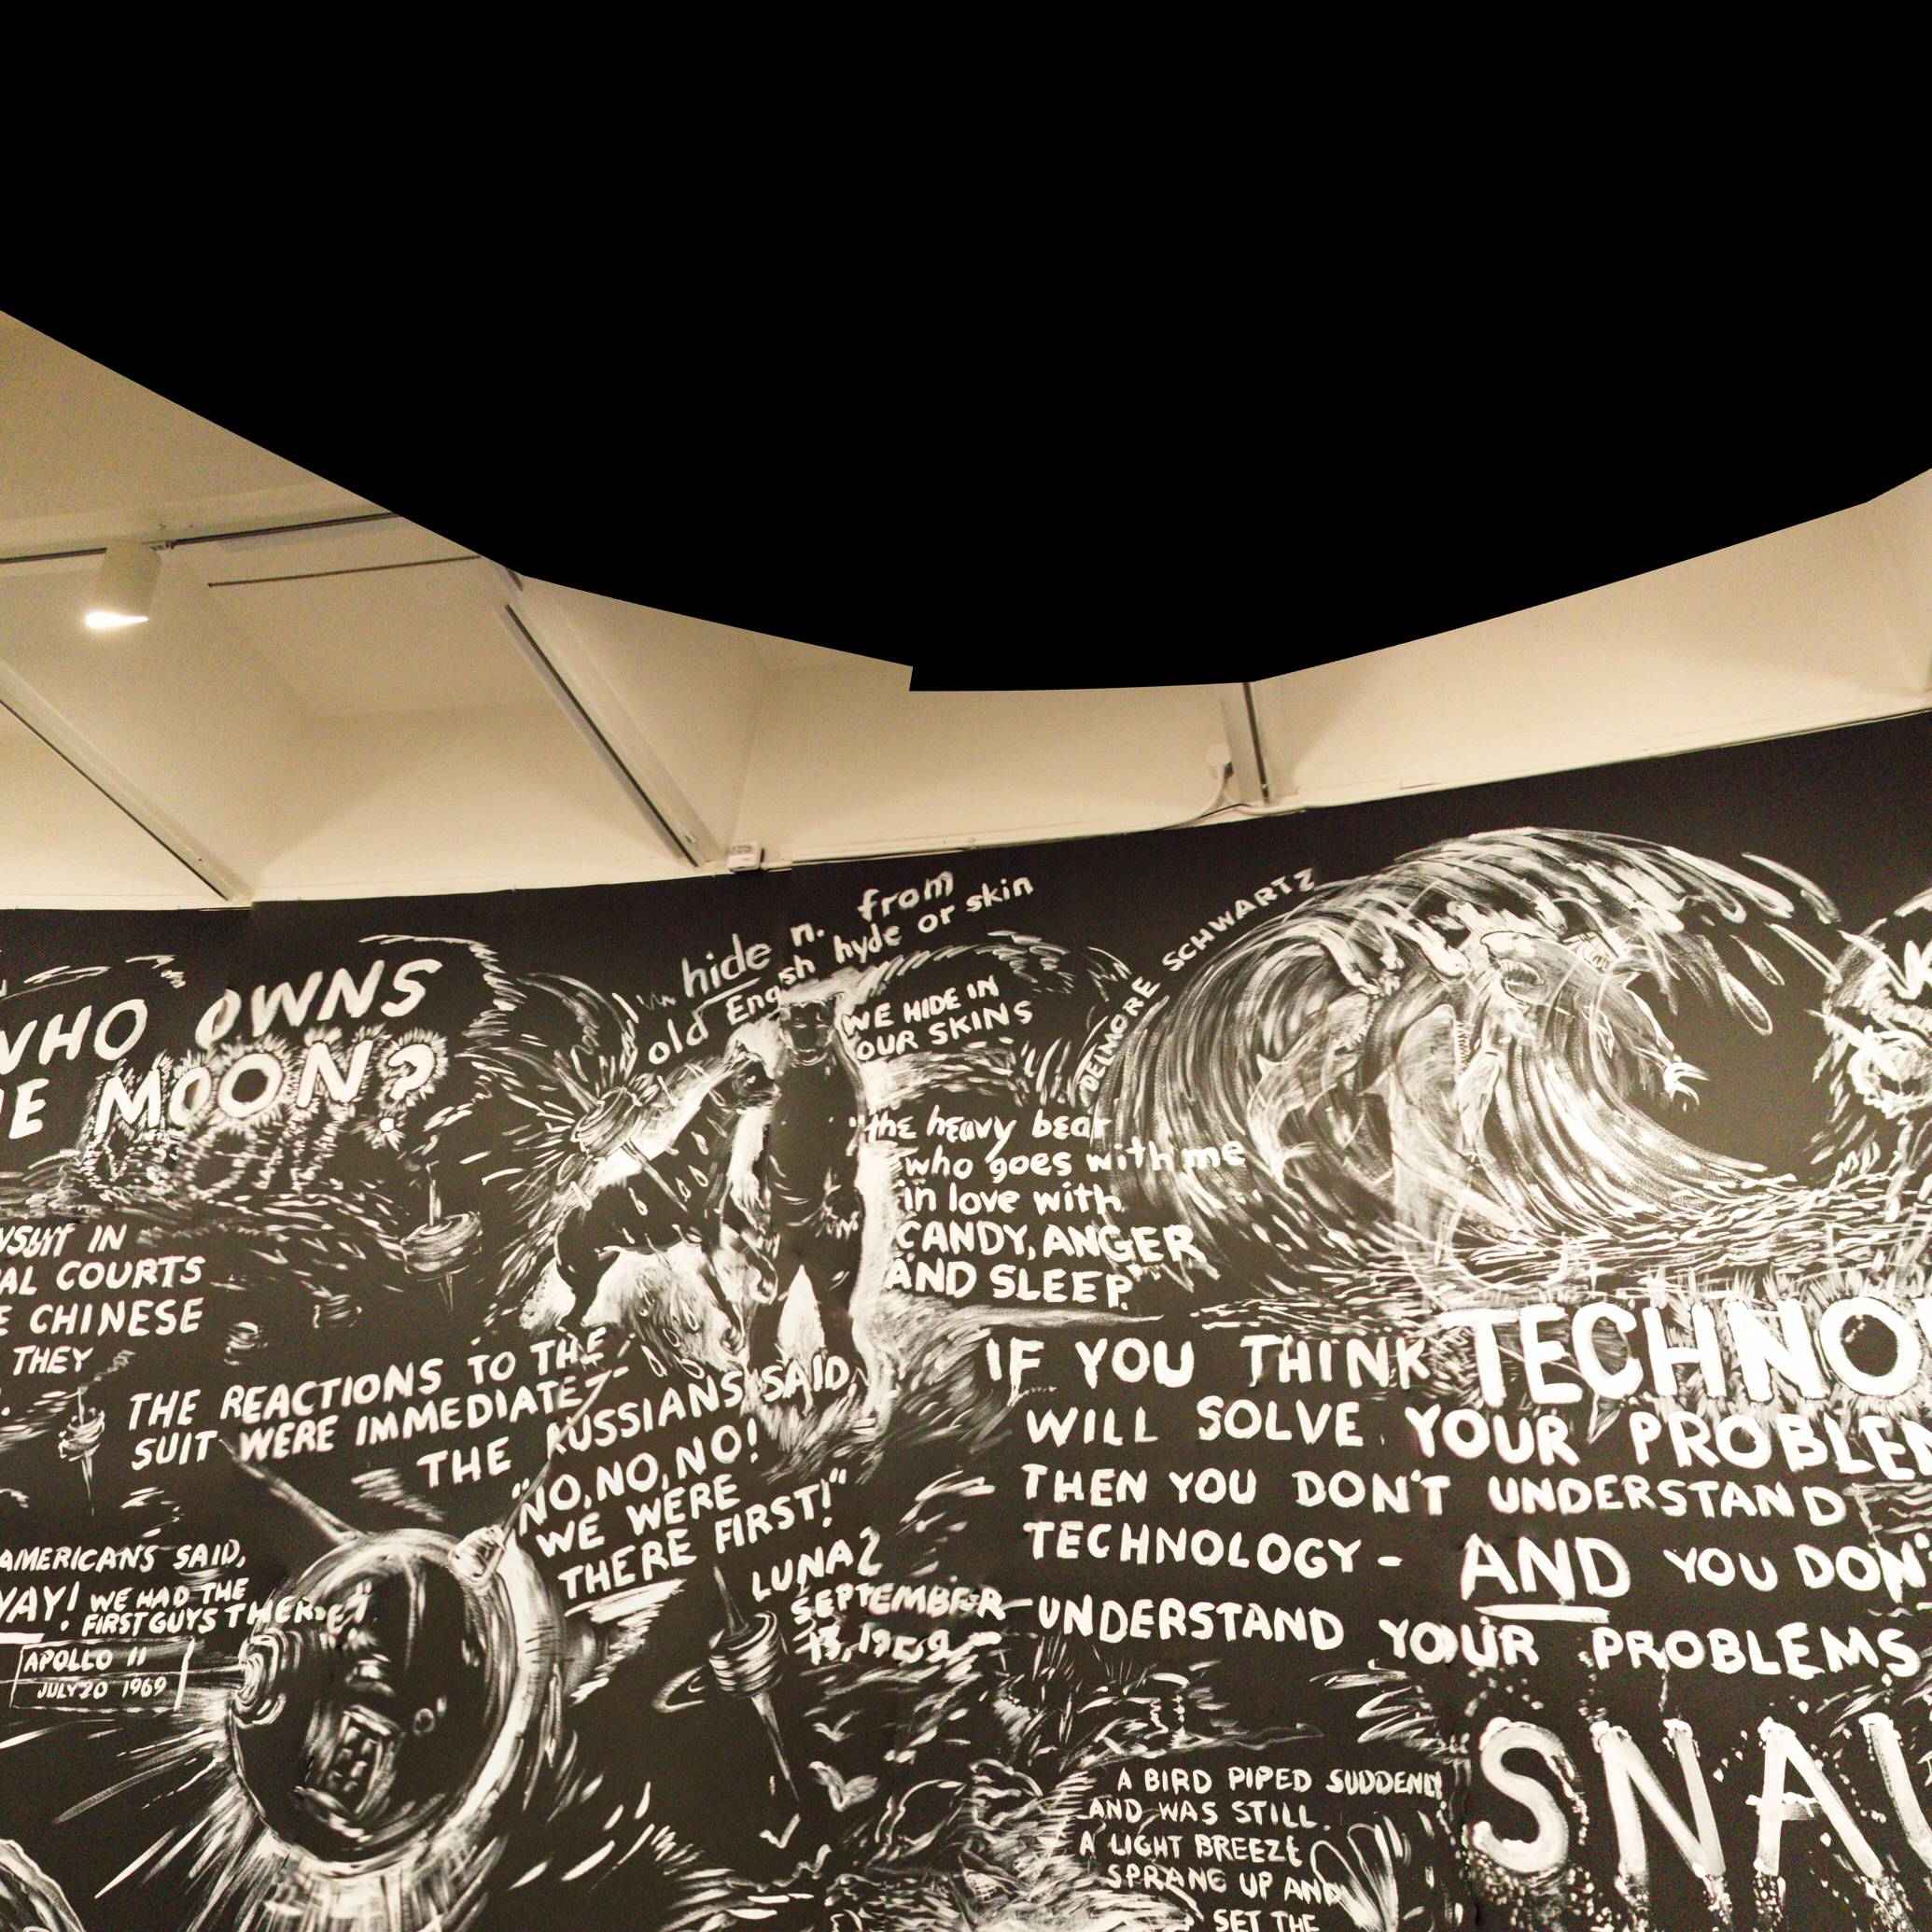 WHO OWNS
MOON?
IN
COURTS
CHINESE
THEY
THE REACTIONS TO THE
SUIT WERE IMMEDIATE-
THE RUSSIANS SAID,
"NO, NO, NO!
WE WERE
THERE FIRST!"
LUNA 2
SEPTEMBER
13, 1959
AMERICANS SAID,
WE HAD THE
FIRST GUYS THERE!"
APOLLO 11
JULY 20 1969
hide n. from
old hyde or skin
WE HIDE IN
OUR SKINS
DELMORE SCHWARTZ
"the heavy bear
who goes with me
in love with
CANDY, ANGER
AND SLEEP."
IF YOU THINK
WILL SOLVE YOUR
THEN YOU DON'T UNDERSTAND
TECHNOLOGY - AND YOU DON'T
UNDERSTAND YOUR PROBLEMS
A BIRD PIPED SUDDENLY
AND WAS STILL.
A LIGHT BREEZE
SPRANG UP AND
SET THE